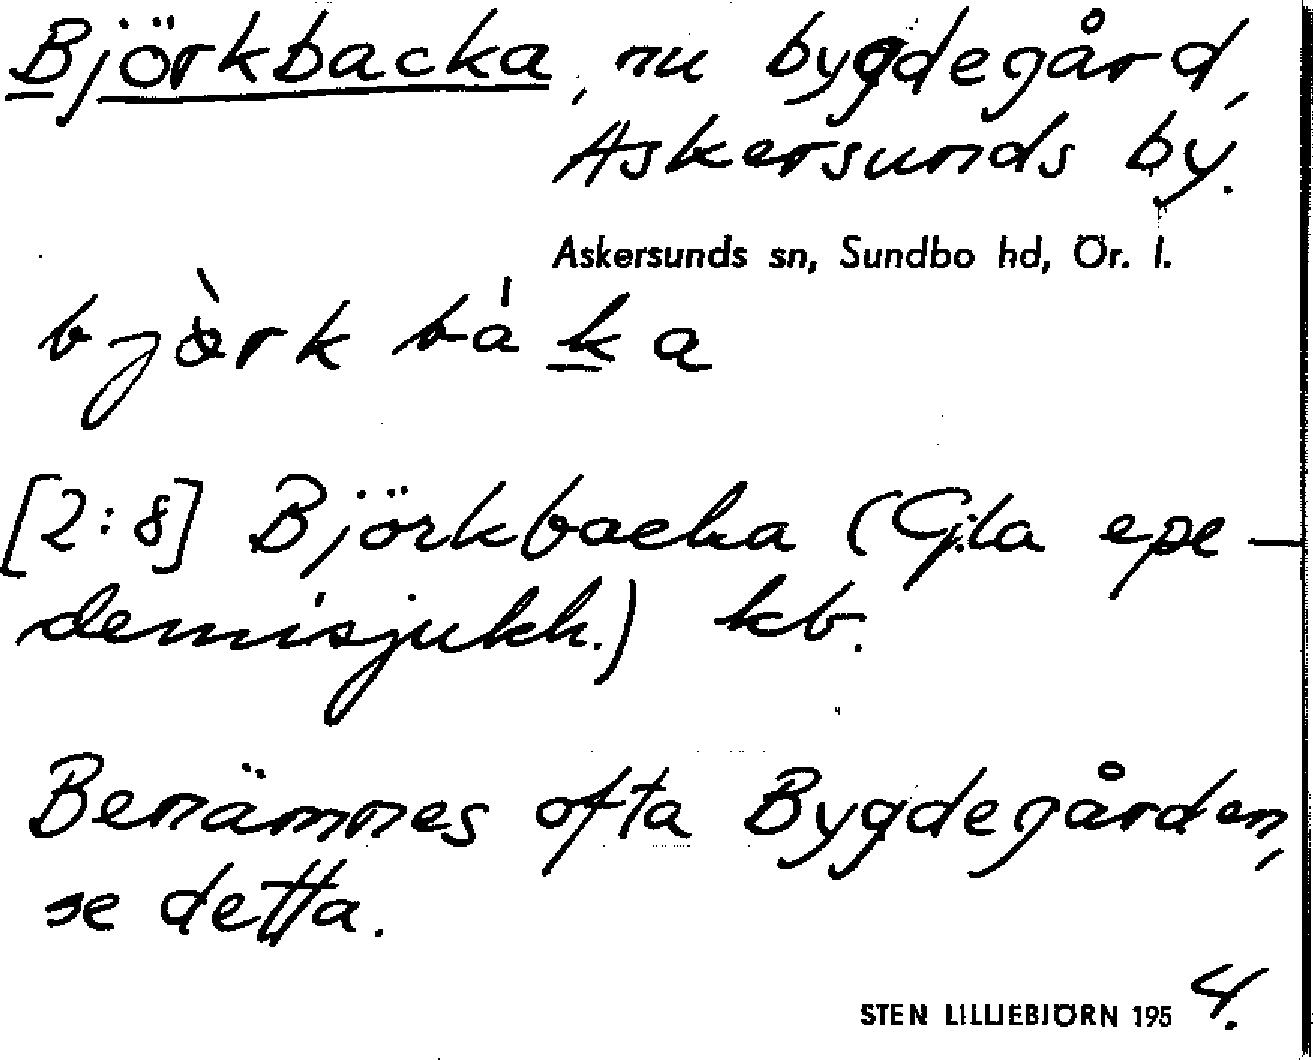 Björkbacka, nu bygdegård,
Askersunds by.
Askersunds sn, Sundbo hd, Ör. l.
bjὸrk báka
[2:8] Björkbacka (Gla epe-
demisjukh.) kb.
Benämnes ofta Bygdegården,
se detta.
STEN LILLIEBJÖRN 1954.